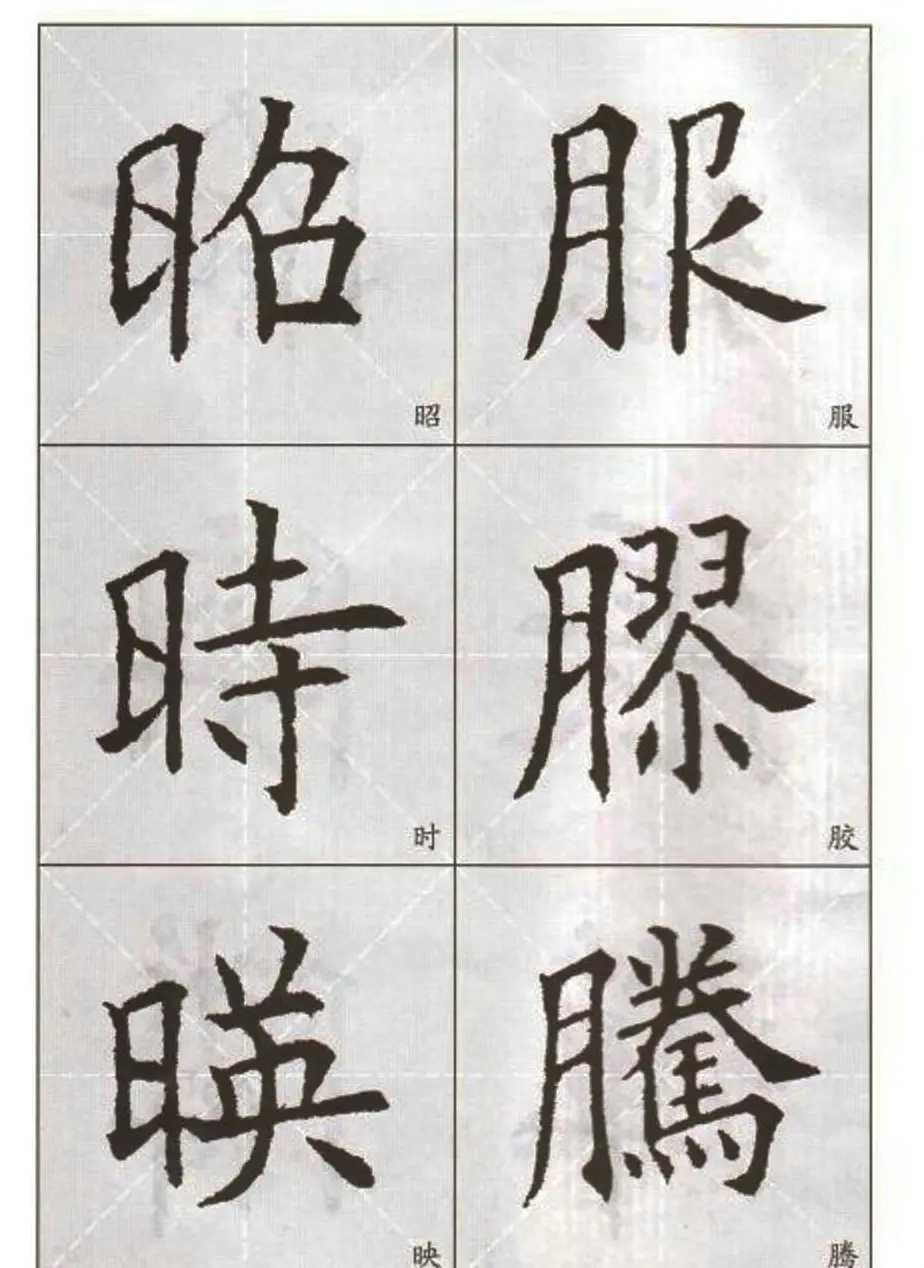 昭 服
昭 服
時 膠
时 胶
暎 騰
映 腾